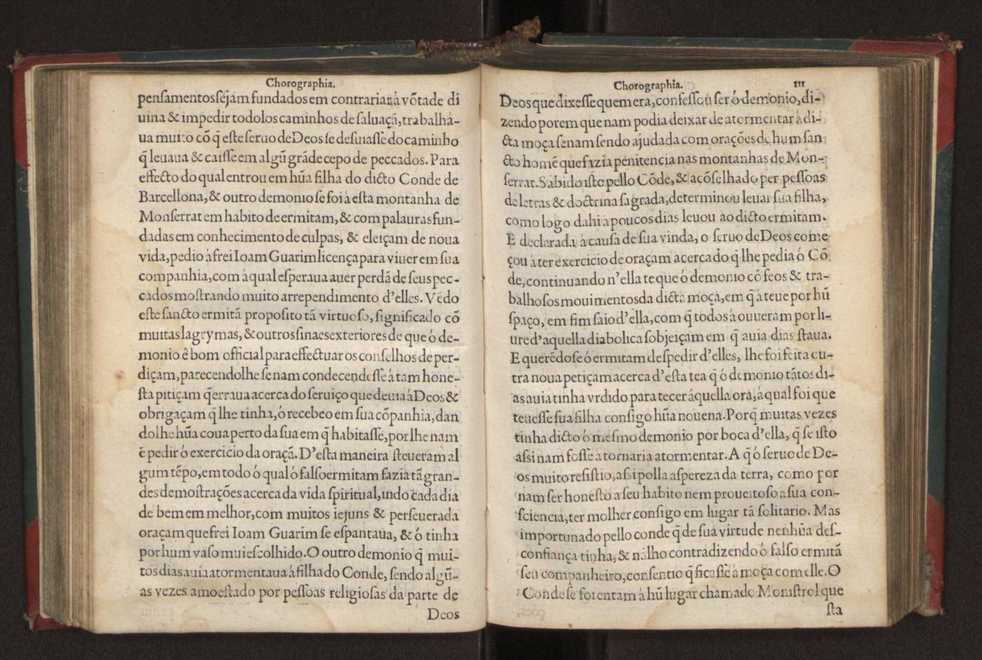 Chorographia.
pensamentos sejam fundados em contrariar à võtade di
uina & impedir todolos caminhos de saluaçã, trabalhâ-
ua muito cõ q̃ este seruo de Deos se desuiasse do caminho
q̃ leuaua & caisse em algũ grãde cepo de peccados. Para
effecto do qual entrou em hũa filha do dicto Conde de
Barcellona, & outro demonio se foi à esta montanha de
Monserrat em habito de ermitam, & com palauras fun-
dadas em conhecimento de culpas, & eleiçam de noua
vida, pedio à frei Ioam Guarim licença para viuer em sua
companhia, com à qual esperaua auer perdã de seus pec-
cados mostrando muito arrependimento d'elles. Vẽdo
este sancto ermitã proposito tã virtuoso, significado cõ
muitas lagrymas, & outros sinaes exteriores de que ó de-
monio ê bom official para effectuar os conselhos de per-
diçam, parecendolhe se nam condecendesse à tam hone-
sta pitiçam q̃ erraua acerca do seruiço que deuia à Deos &
obrigaçam q̃ lhe tinha, ó recebeo em sua cõpanhia, dan
dolhe hũa coua perto da sua em q̃ habitasse, por lhe nam
ẽpedir ó exercicio da oraçã. D'esta maneira steueram al
gum tẽpo, em todo ó qual ó falso ermitam fazia tã gran-
des demostrações acerca da vida spiritual, indo cada dia
de bem em melhor, com muitos iejuns & perseuerada
oraçam que frei Ioam Guarim se espantaua, & ó tinha
por hum vaso mui escolhido. O outro demonio q̃ mui-
tos dias auia atormentaua à filha do Conde, sendo algũ-
as vezes amoestado por pessoas religiosas da parte de
Deos
Chorographia. 111
Deos que dixesse quem era, confessou ser ó demonio, di-
zendo porem que nam podia deixar de atormentar à di-
cta moça se nam sendo ajudada com orações de hum san
cto homẽ que fazia penitencia nas montanhas de Mon-
serrat. Sabido isto pello Cõde, & acõselhado per pessoas
de letras & doctrina sagrada, determinou leuar sua filha,
como logo dahi à poucos dias leuou ao dicto ermitam.
E declarada à causa de sua vinda, o seruo de Deos come
çou à ter exercicio de oraçam acerca do q̃ lhe pedia ó Cõ
de, continuando n'ella te que ó demonio cõ feos & tra-
balhosos mouimentos da dicta moça, em q̃ à teue por hũ
spaço, em fim saio d'ella, com q̃ todos à ouueram por li-
ure d'aquella diabolica sobjeiçam em q̃ auia dias staua.
E querẽdose ó ermitam despedir d'elles, lhe foi feita ou-
tra noua petiçam acerca d'esta tea q̃ ó demonio tãtos di-
as auia tinha vrdido para tecer àquella ora, à qual foi que
teuesse sua filha consigo hũa nouena. Porq̃ muitas vezes
tinha dicto ó mesmo demonio por boca d'ella, q̃ se isto
assi nam fosse à tornaria atormentar. A q̃ ó seruo de De-
os muito resistio, assi polla aspereza da terra, como por
nam ser honesto a seu habito nem proueitoso à sua con-
sciencia, ter molher consigo em lugar tã solitario. Mas
importunado pello conde q̃ de sua virtude nenhũa des-
confiança tinha, & nã lho contradizendo ó falso ermitã
seu companheiro, consentio q̃ ficasse à moça com elle. O
Conde se foi entam à hũ lugar chamado Monistrol que
sta